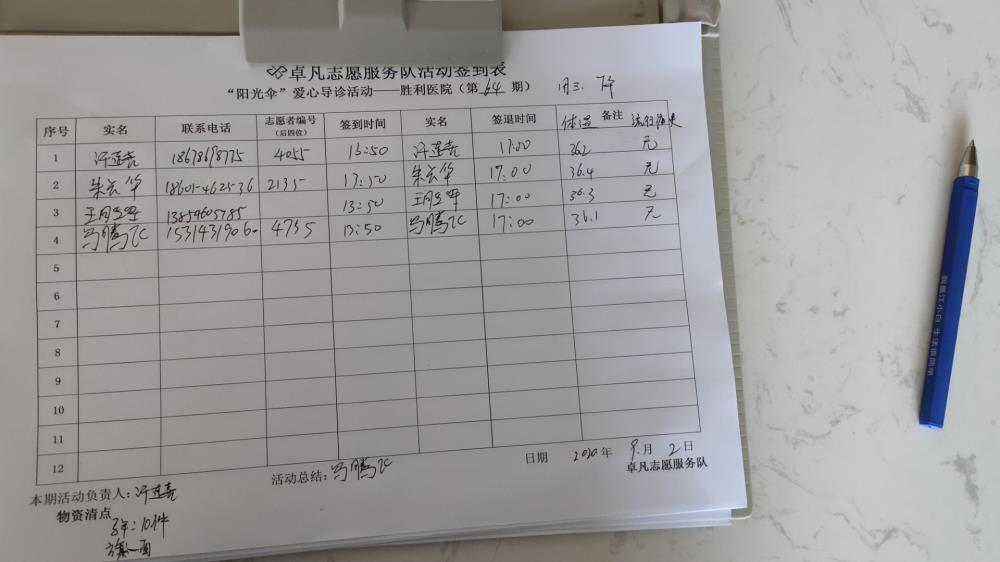 卓凡志愿服务队活动签到表
“阳光伞”爱心导诊活动——胜利医院（第 64 期） 周三 下午
序号 实名 联系电话 志愿者编号（后四位） 签到时间 实名 签退时间 体温 备注 流行病史
1 许莲喜 18678698775 4055 13:50 许莲喜 17:00 36.2 无
2 朱云华 18601462536 2135 13:50 朱云华 17:00 36.4 无
3 13854605785 13:50 17:00 36.3 无
4 马腾飞 15314319060 4735 13:50 马腾飞 17:00 36.1 无
5
6
7
8
9
10
11
12
本期活动负责人：许莲喜 活动总结：马腾飞 日期 2020年 9月 2日
物资清点 卓凡志愿服务队